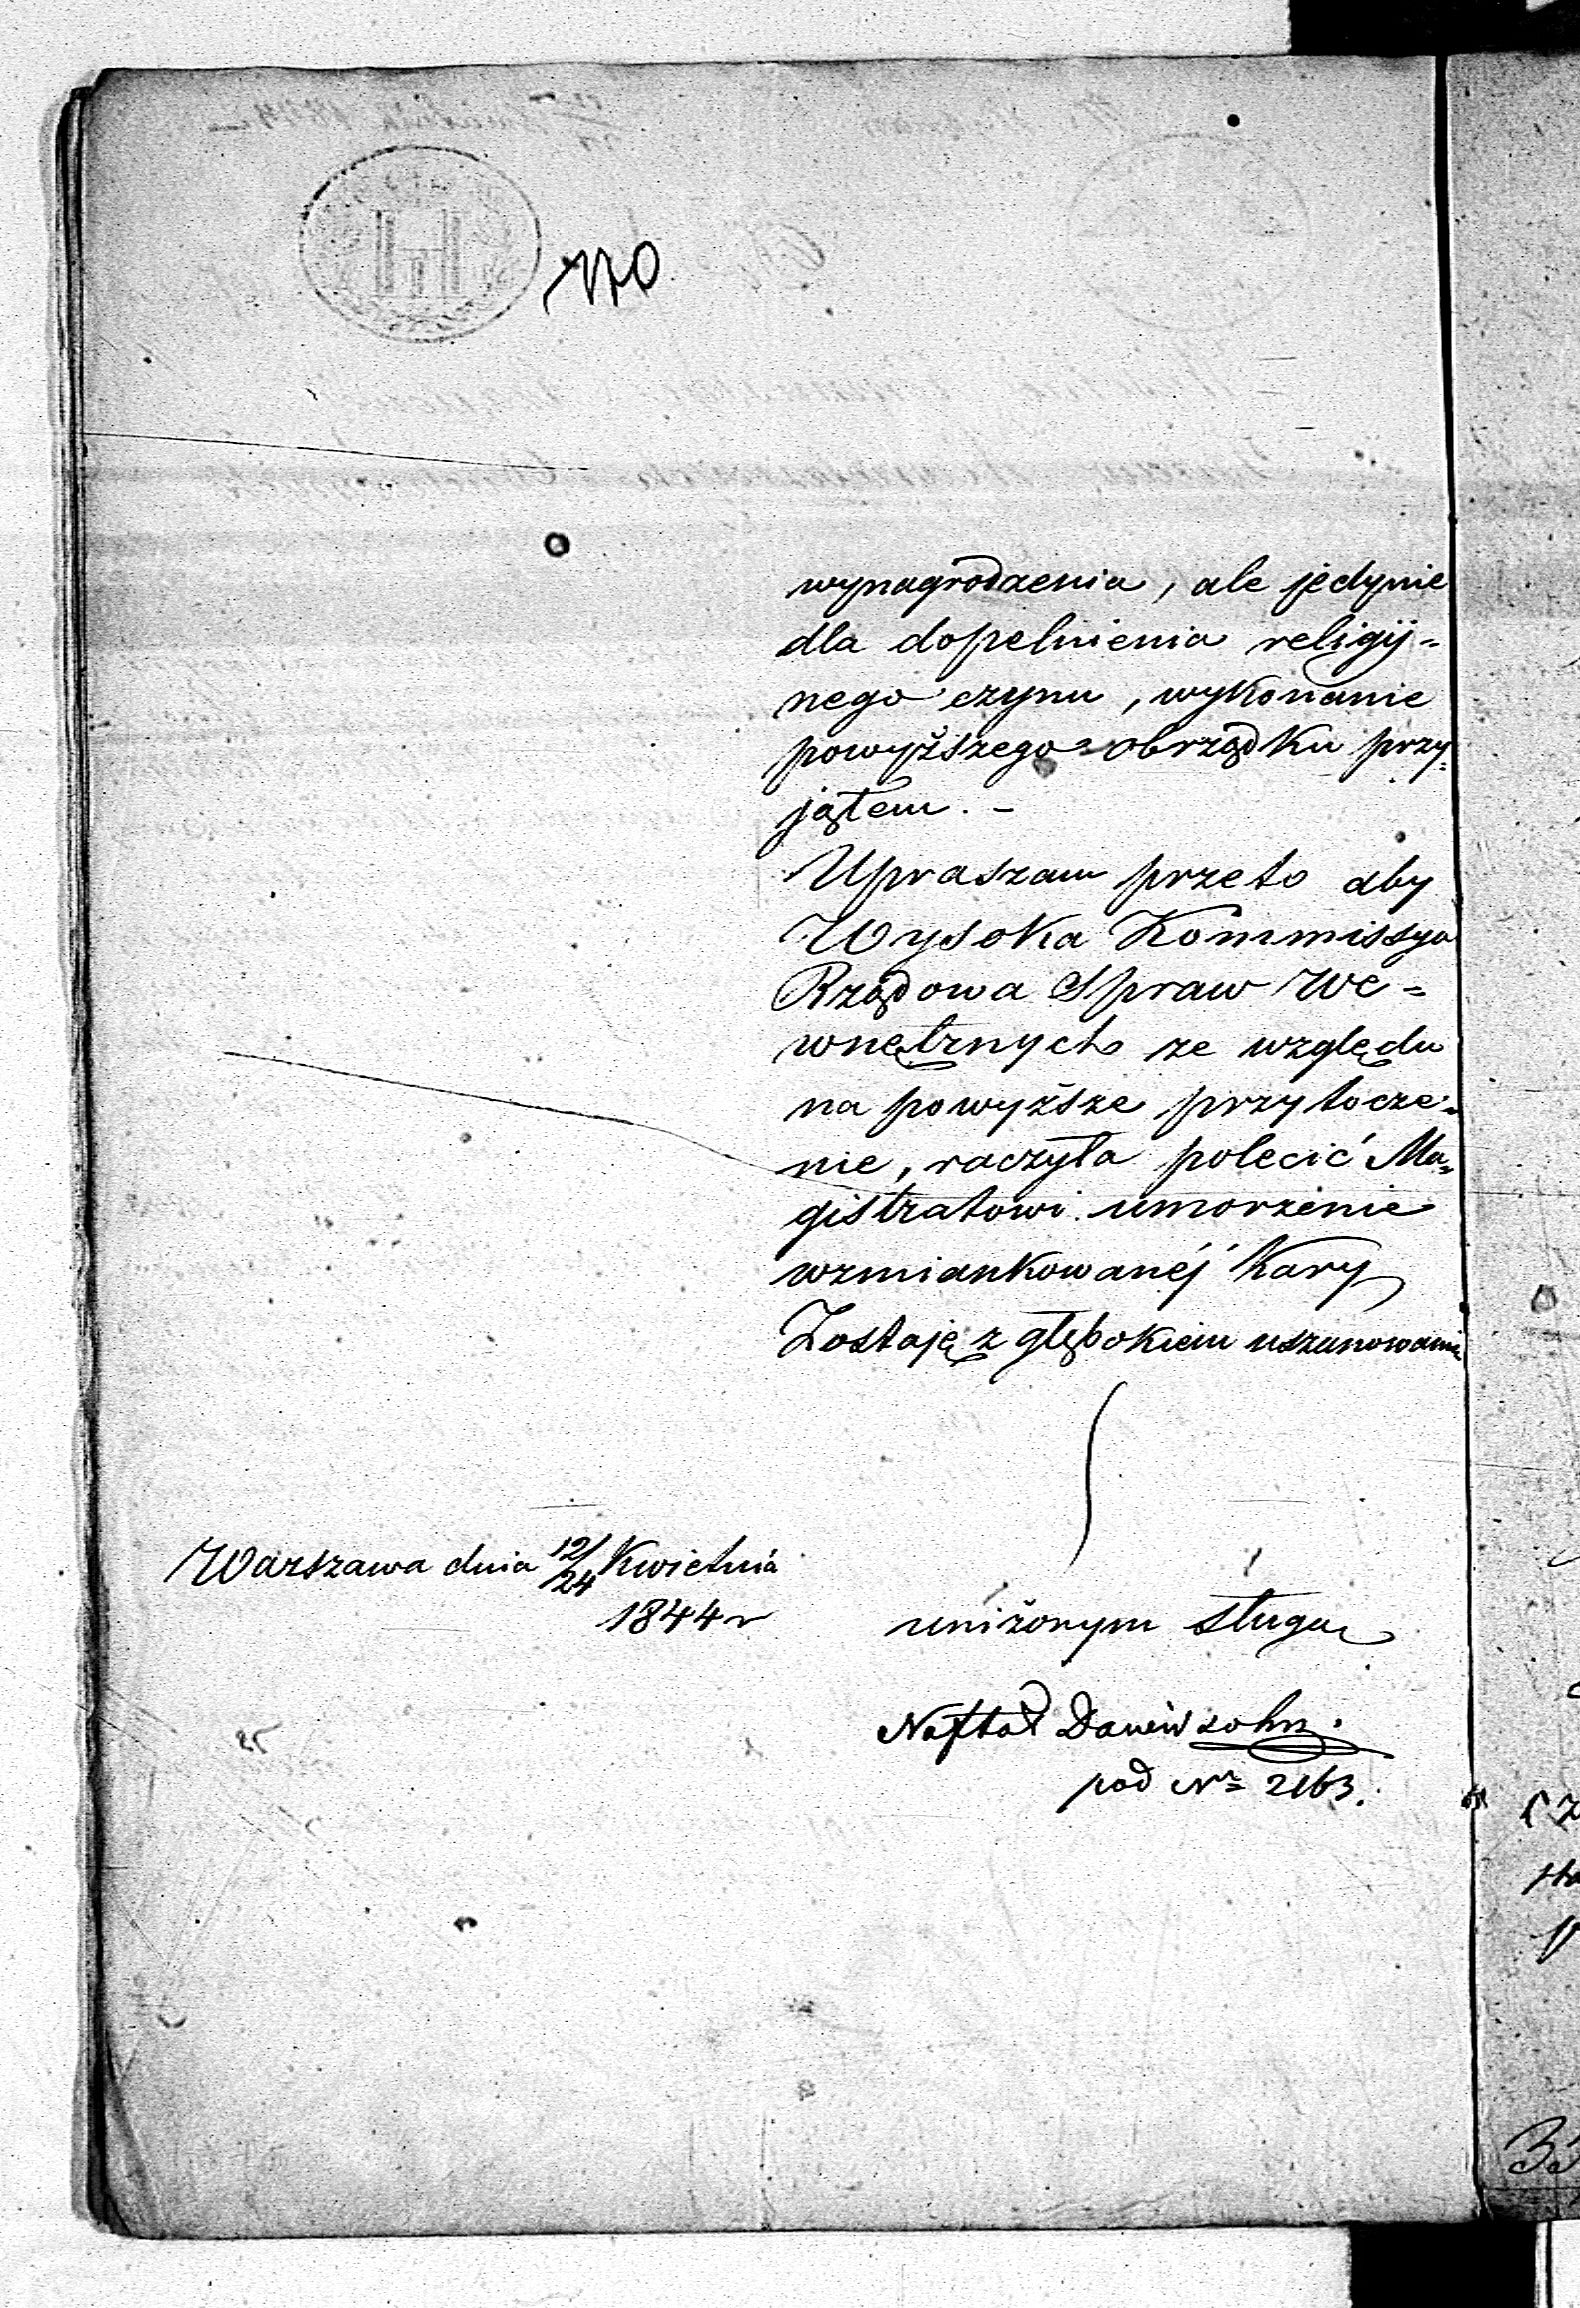 170
wynagrodzenia, ale jedynie
dla dopełnienia religij=
nego czynu, wykonanie
powyższego obrządku przy=
jąłem. -
Upraszam przeto aby
Wysoka Kommissya
Rządowa Spraw We=
wnętrznych ze względu
na powyższe przytocze=
nie, raczyła polecić Ma=
gistratowi umorzenie
wzmiankowanéj kary
Zostaję z głębokiem uszanowaniem
Warszawa dnia 12/24 Kwietnia
1844 r
uniżonym sługą
Naftal Dawidsohn.
pod Nr 2163.